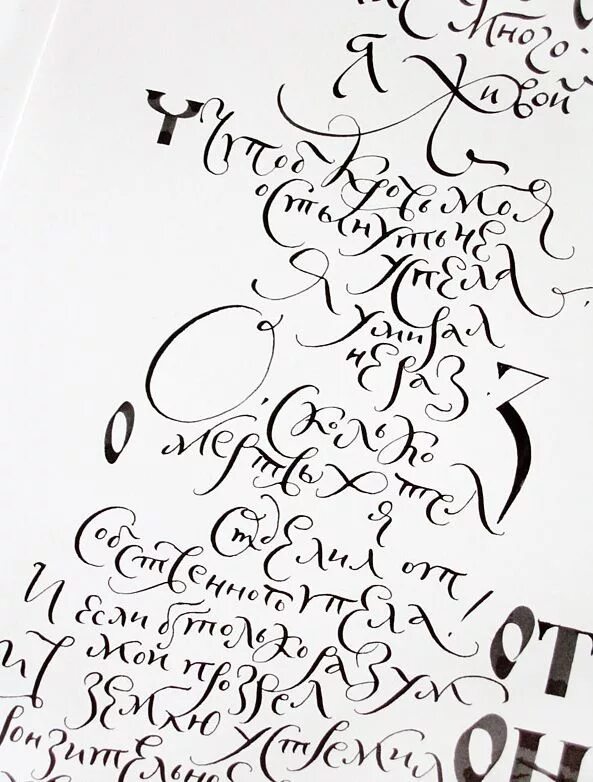 много.
Я живой
Ч Чтоб кровь моя
остынуть не
успела
Я умирал
не раз
О, сколько
О мертвых тел
я
отделил от
собственного тела!
И если б только разум
ОТ
мой прозрел
и в землю устремил
ОН
ронзительное